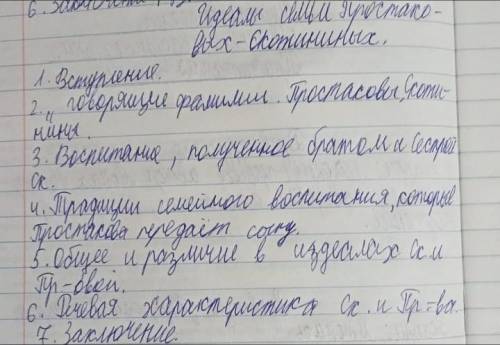 6. Заключение
Идеалы семьи Простако-
вых-Скотининых.
1. Вступление.
2. „ говорящие фамилии. Простаковы, Скоти-
нины.
3. Воспитание, полученное братом и сестрой
Ск.
4. Традиции семейного воспитания, которые
Простакова передаёт сыну.
5. Общее и различие в издеалах Ск. и
Пр-овой.
6. Речевая характеристика Ск. и Пр-ва.
7. Заключение.